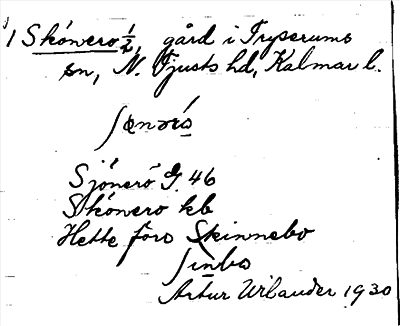 1 Skönero ½, gård i Tryserums
sn, N. Tjusts hd, Kalmar l.
Sjönerö G. 46
Skönero kb
Hette föro Skinnebo
Artur Wilander 1930